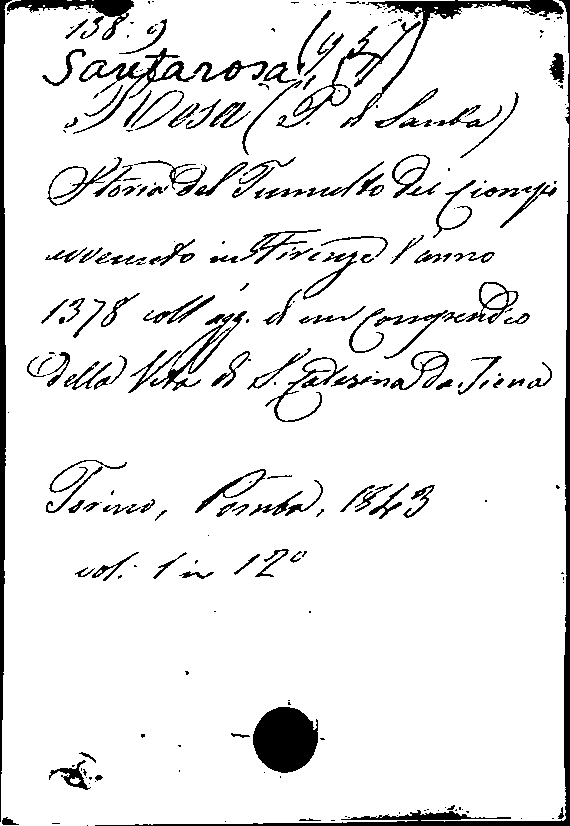 138. 9 (937)
Santarosa
Rosa (P. di Santa)
Storia del Tumulto dei Ciompi
avvenuto in Firenze l'anno
1378 coll'agg. di un Compendio
della Vita di S. Caterina da Siena
Torino, Pomba, 1843
vol. 1 in 12º